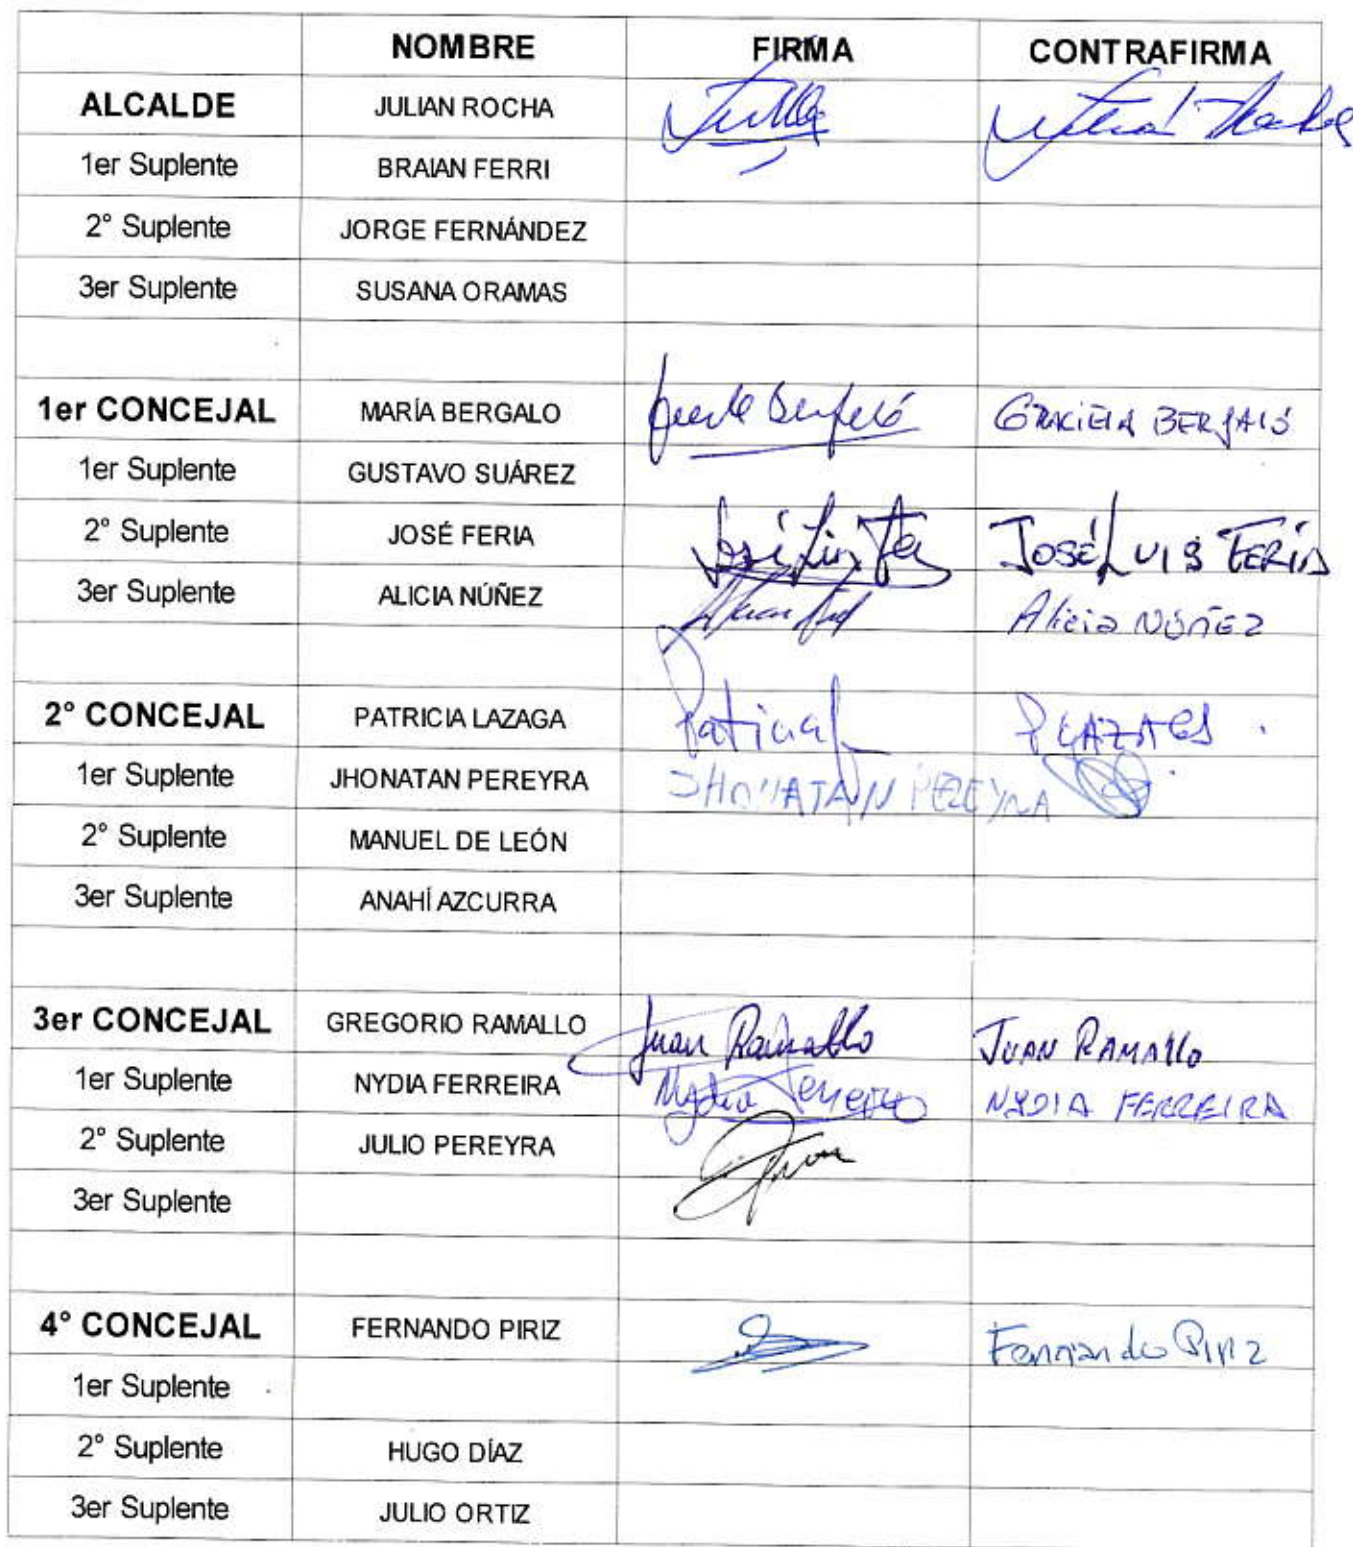 NOMBRE FIRMA CONTRAFIRMA
ALCALDE JULIAN ROCHA
1er Suplente BRAIAN FERRI
2° Suplente JORGE FERNÁNDEZ
3er Suplente SUSANA ORAMAS
1er CONCEJAL MARÍA BERGALO GRACIELA BERGALÓ
1er Suplente GUSTAVO SUÁREZ
2° Suplente JOSÉ FERIA JOSÉ LUIS FERIA
3er Suplente ALICIA NÚÑEZ Alicia NÚÑEZ
2° CONCEJAL PATRICIA LAZAGA
1er Suplente JHONATAN PEREYRA JHONATAN PEREYRA
2° Suplente MANUEL DE LEÓN
3er Suplente ANAHÍ AZCURRA
3er CONCEJAL GREGORIO RAMALLO Juan Ramallo JUAN RAMALLO
1er Suplente NYDIA FERREIRA Nydia Ferreira NYDIA FERREIRA
2° Suplente JULIO PEREYRA
3er Suplente
4° CONCEJAL FERNANDO PIRIZ Fernando Piriz
1er Suplente
2° Suplente HUGO DÍAZ
3er Suplente JULIO ORTIZ